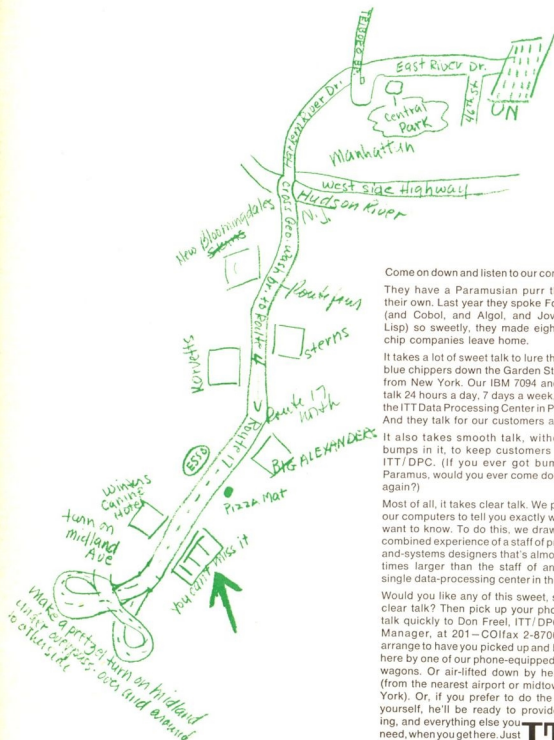 East River Dr.
Harlem River Dr.
46th St
UN
Central
Park
Manhattan
West side Highway
Hudson River
N.J.
Cross Geo. Wash Br. to Route 4
New Bloomingdales
Sterns
Route four
Sterns
Korvetts
Route 17
North
Route 17
ESSO
BIG ALEXANDERS
Pizza Mat
Canine
Hotel
turn on
midland
Ave
ITT
you can't miss it
make a pretzel turn on midland
under overpass-over and around
to other side
Come on down and listen to our co
They have a Paramusian purr t
their own. Last year they spoke Fo
(and Cobol, and Algol, and Jov
Lisp) so sweetly, they made eigh
chip companies leave home.
It takes a lot of sweet talk to lure th
blue chippers down the Garden St
from New York. Our IBM 7094 an
talk 24 hours a day, 7 days a week
the ITT Data Processing Center in P
And they talk for our customers a
It also takes smooth talk, with
bumps in it, to keep customers
ITT/DPC. (If you ever got bum
Paramus, would you ever come do
again?)
Most of all, it takes clear talk. We p
our computers to tell you exactly w
want to know. To do this, we draw
combined experience of a staff of p
and-systems designers that's almo
times larger than the staff of an
single data-processing center in th
Would you like any of this sweet, s
clear talk? Then pick up your pho
talk quickly to Don Freel, ITT/DP
Manager, at 201—COlfax 2-870
arrange to have you picked up and
here by one of our phone-equipped
wagons. Or air-lifted down by he
(from the nearest airport or midtow
York). Or, if you prefer to do the
yourself, he'll be ready to provid
ing, and everything else you
need, when you get here. Just